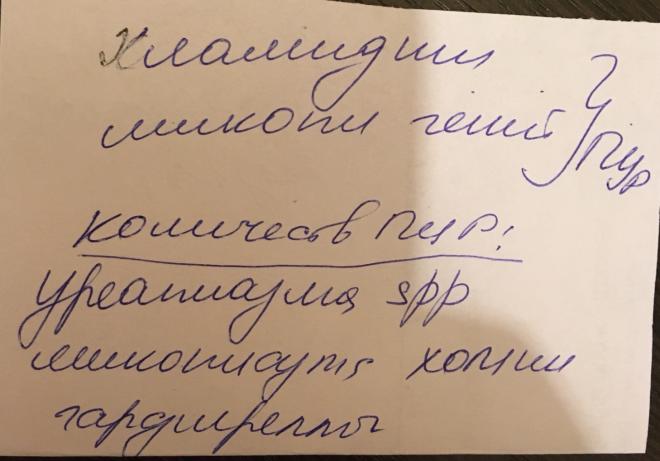 Хламидии
микопл генит } ПЦР
количеств ПЦР:
Уреаплазма spp
микоплазма хомин
гарднереллы